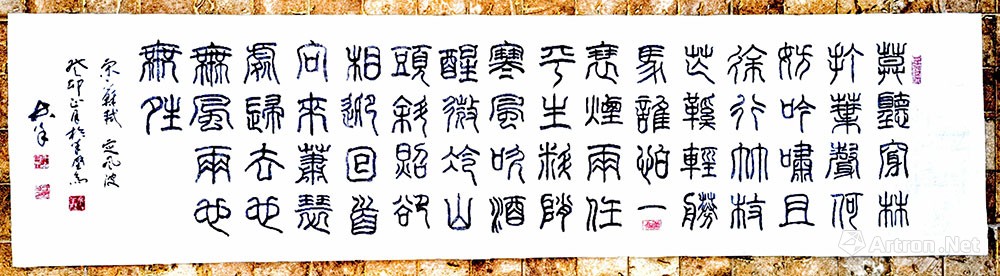 莫聽穿林
打葉聲何
妨吟嘯且
徐行竹杖
芒鞵輕勝
馬誰怕一
蓑煙雨任
平生料峭
寒風吹酒
醒微冷山
頭斜照卻
相迎回首
向來蕭瑟
處歸去也
無風雨也
無晴
宋蘇軾 定風波
癸卯正月於
Artron.Net